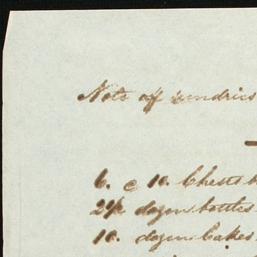 Note of sundries
6. c 10. Chests
2½ dozen bottles
10. dozen Cakes